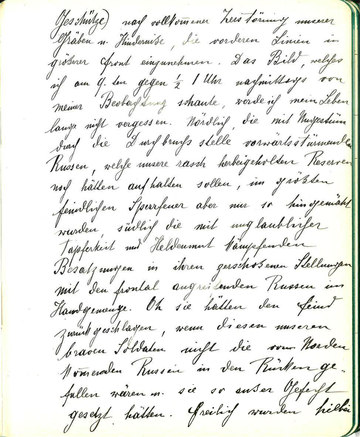 Geschütze) nach vollkommener Zerstörung unserer
Gräben u. Hindernisse, die vorderen Linien in
größerer Front einzunehmen. Das Bild, welches
ich am 9. ten gegen ½ 1 Uhr nachmittags von
meiner Beobachtung schaute, werde ich mein Leben
lang nicht vergessen. Nördlich die mit Ungestüm
durch die Durchbruchsstelle vorwärtsstürmenden
Russen, welche unsere rasch herbeigeholten Reserven
noch hätten aufhalten sollen, im größten
feindlichen Sperrfeuer aber nur so hingemäht
wurden, südlich die mit unglaublicher
Tapferkeit und Heldenmut kämpfenden
Besatzungen in ihren zerschossenen Stellungen
mit den frontal angreifenden Russen im
Handgemenge. Oh sie hätten den Feind
zurückgeschlagen, wenn diesen unseren
braven Soldaten nicht die vom Norden
kommenden Russen in den Rücken ge-
fallen wären u. sie so außer Gefecht
gesetzt hätten. Freilich wurden hiebei